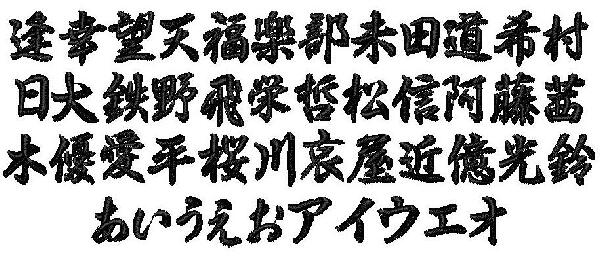 逢幸望天福楽部未田道希村
日大鉄野飛栄哲松信阿藤茜
水優愛平桜川哀屋近億光鈴
あいうえおアイウエオ